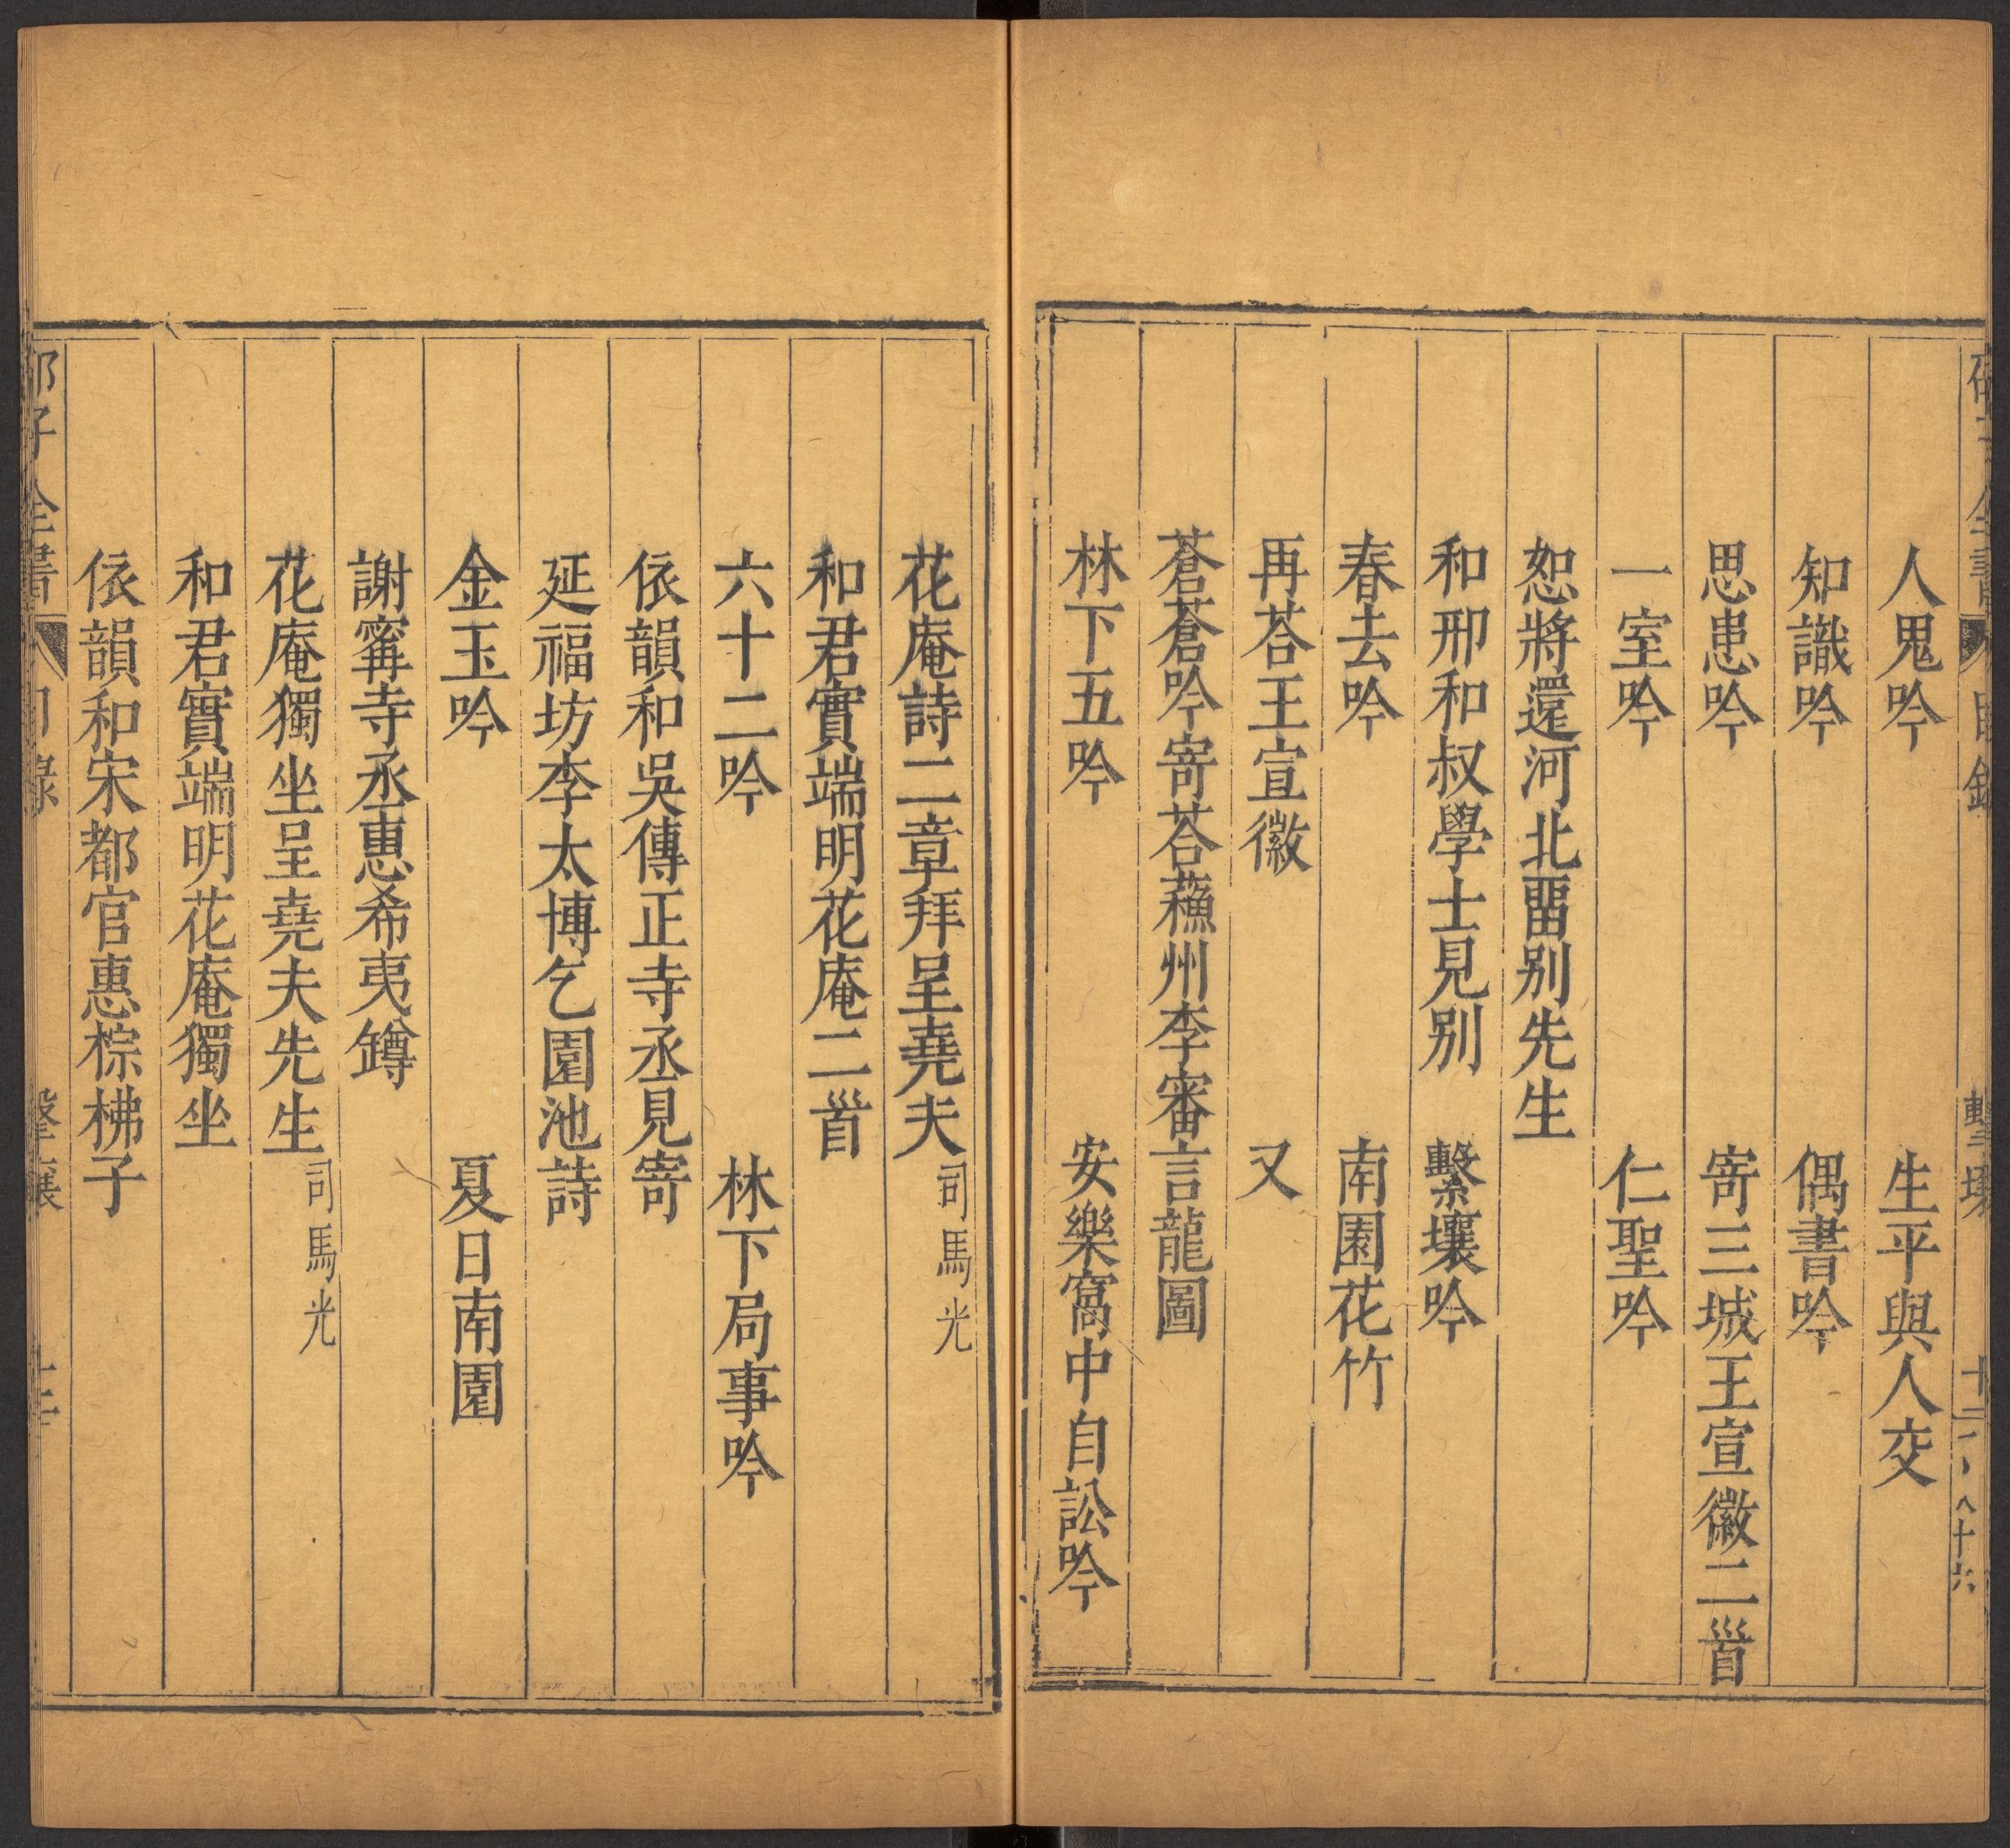 人鬼吟　生平與人交
知識吟　偶書吟
思患吟　寄三城王宣徽二首
一室吟　仁聖吟
恕將還河北畱别先生
和邢和叔學士見别　繫壤吟
春去吟　南園花竹
再荅王宣徽　又
蒼蒼吟寄荅蘓州李審言龍圖
林下五吟　安樂窩中自訟吟
花庵詩二章拜呈堯夫　司馬光
和君實端明花庵二首
六十二吟　林下局事吟
依韻和吳傳正寺丞見寄
延福坊李太博乞園池詩
金玉吟　夏日南園
謝寗寺丞惠希夷罇
花庵獨坐呈堯夫先生　司馬光
和君實端明花庵獨坐
依韻和宋都官惠椶柫子
子全書　目錄　擊壤